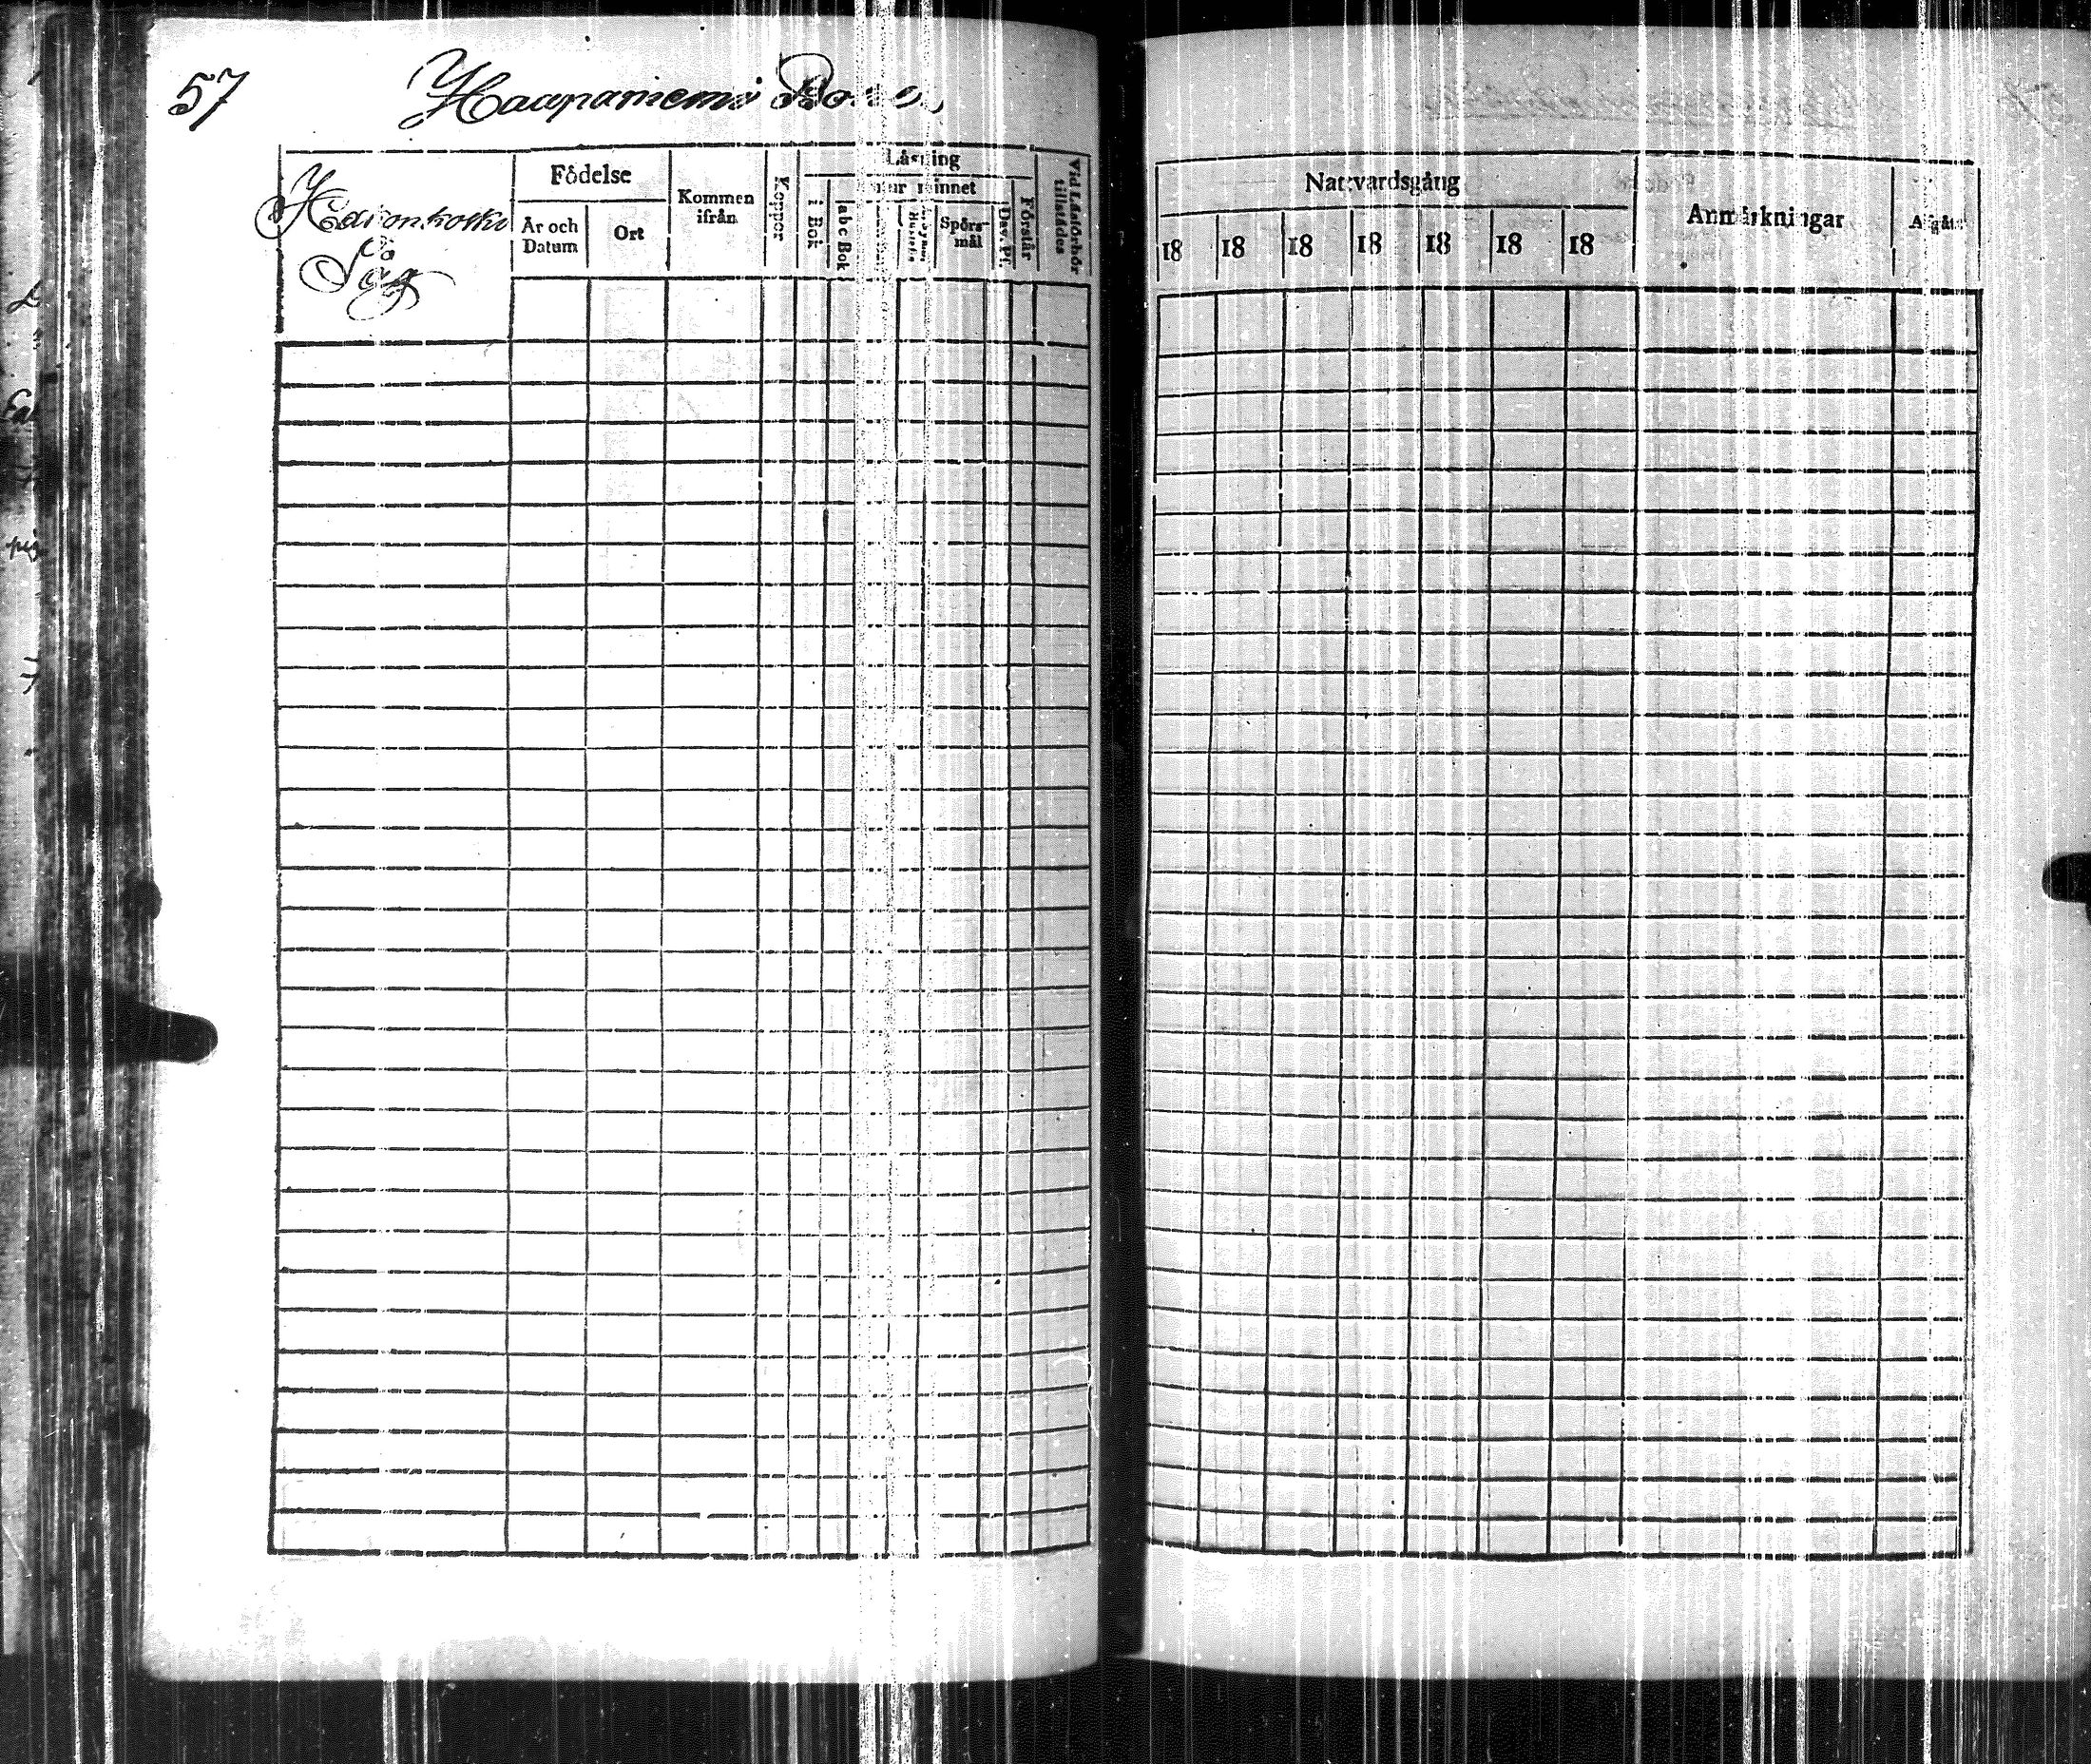 57
Haapaniemi
Haronkoski
Såg
Födelse
År och
Datum
Ort
Kommen
ifrån
Koppor
Läsning
i Bok
abc Bok
minnet
Spörs-
mål
Dav. Ps.
Förstår
Vid Läsförhör
tillstädes
Nattvardsgång
18 18 18 18 18 18 18
Anmärkningar
Afgått